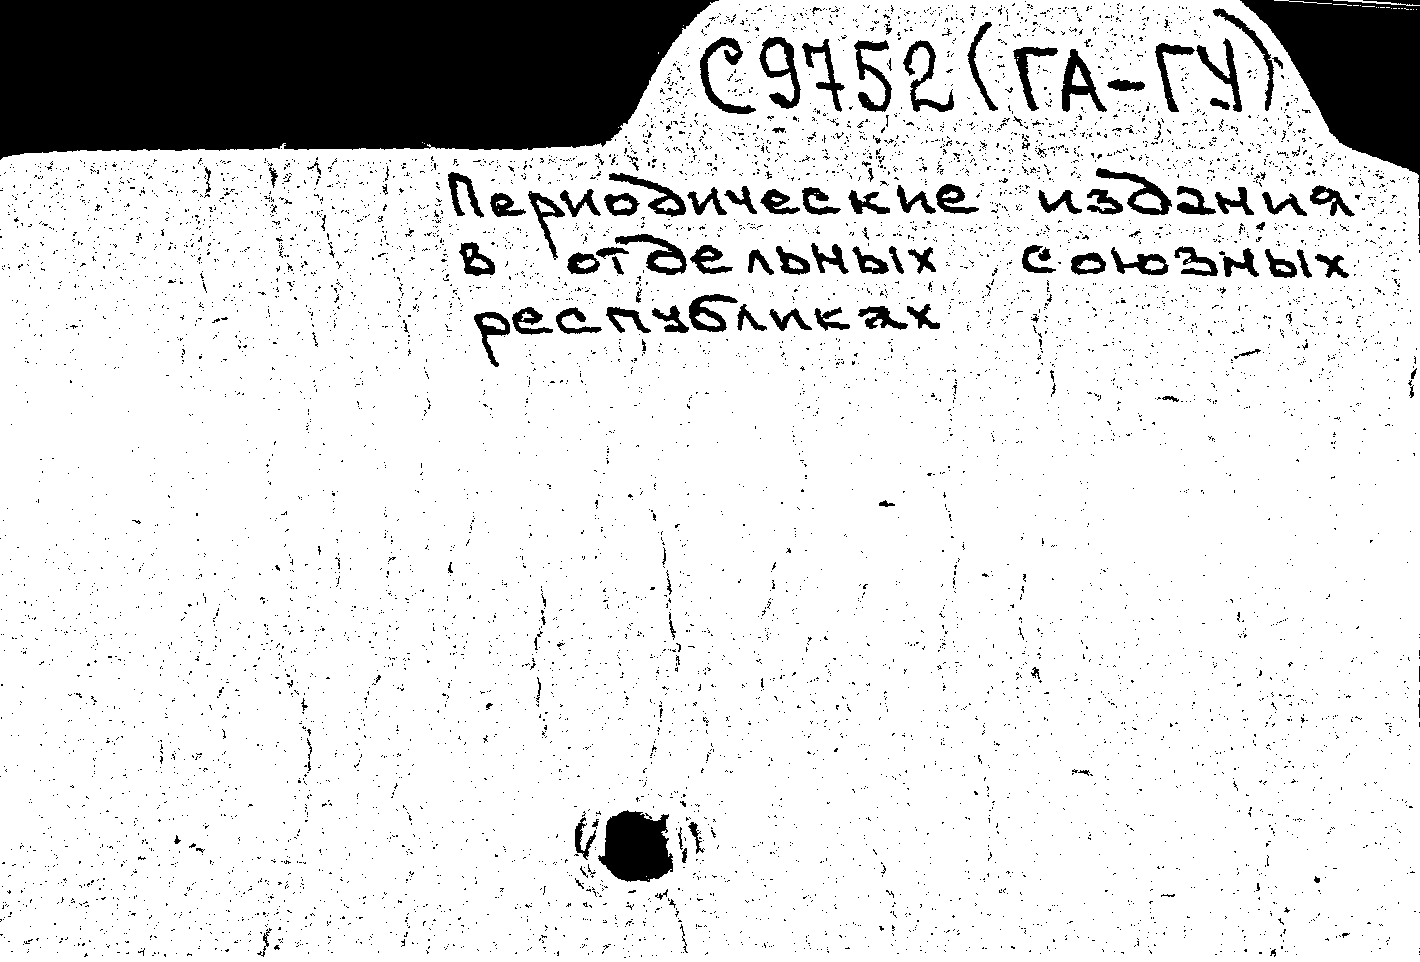 С9752(ГА-ГУ)
Периодические издания
в отдельных союзных
республиках